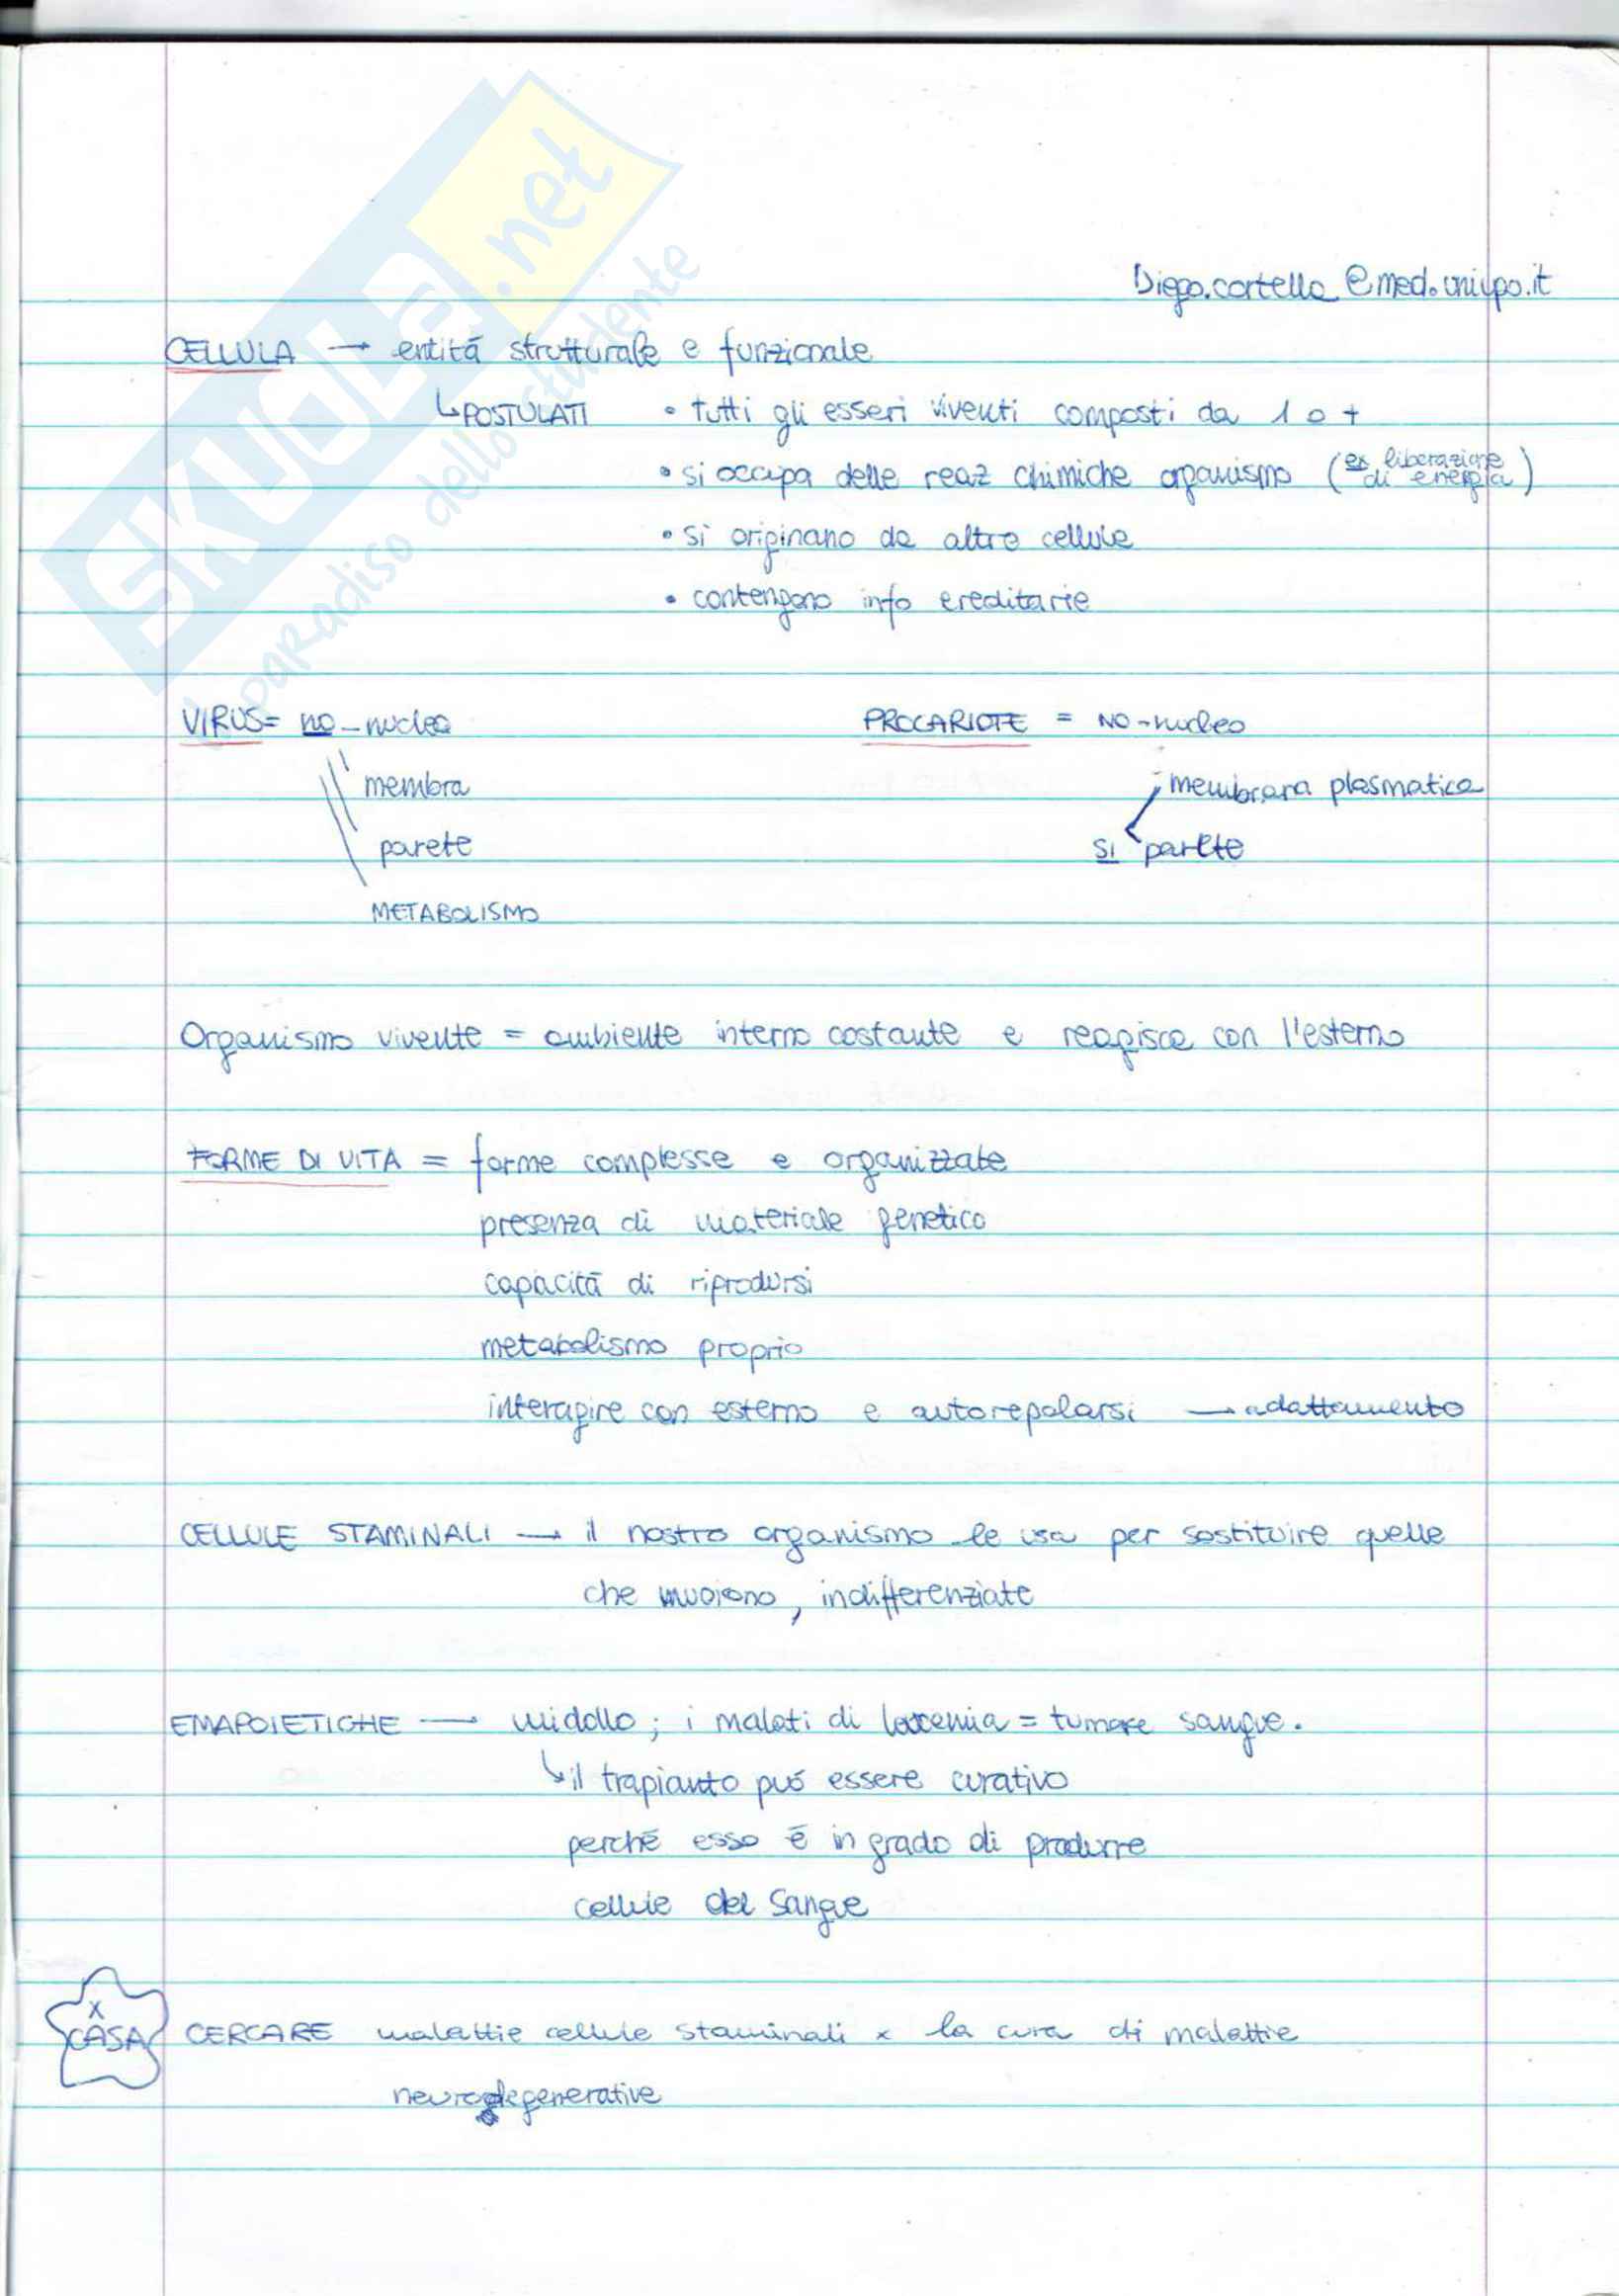 SKUOLA.net
il paradiso dello studente
Diego.cortella @med.uniupo.it
CELLULA → entità strutturale e funzionale
↳ POSTULATI • tutti gli esseri viventi composti da 1 o +
• si occupa delle reaz chimiche organismo (es liberazione di energia)
• si originano da altre cellule
• contengono info ereditarie
VIRUS = no - nucleo PROCARIOTE = NO - nucleo
membra membrana plasmatica
parete SI parete
METABOLISMO
Organismo vivente = ambiente interno costante e reagisce con l'esterno
FORME DI VITA = forme complesse e organizzate
presenza di materiale genetico
capacità di riprodursi
metabolismo proprio
interagire con esterno e autoregolarsi → adattamento
CELLULE STAMINALI → il nostro organismo le usa per sostituire quelle
che muoiono, indifferenziate
EMAPOIETICHE → midollo; i malati di leucemia = tumore sangue.
↳ il trapianto può essere curativo
perché esso è in grado di produrre
cellule del sangue
x
CASA CERCARE malattie cellule staminali x la cura di malattie
neurodegenerative